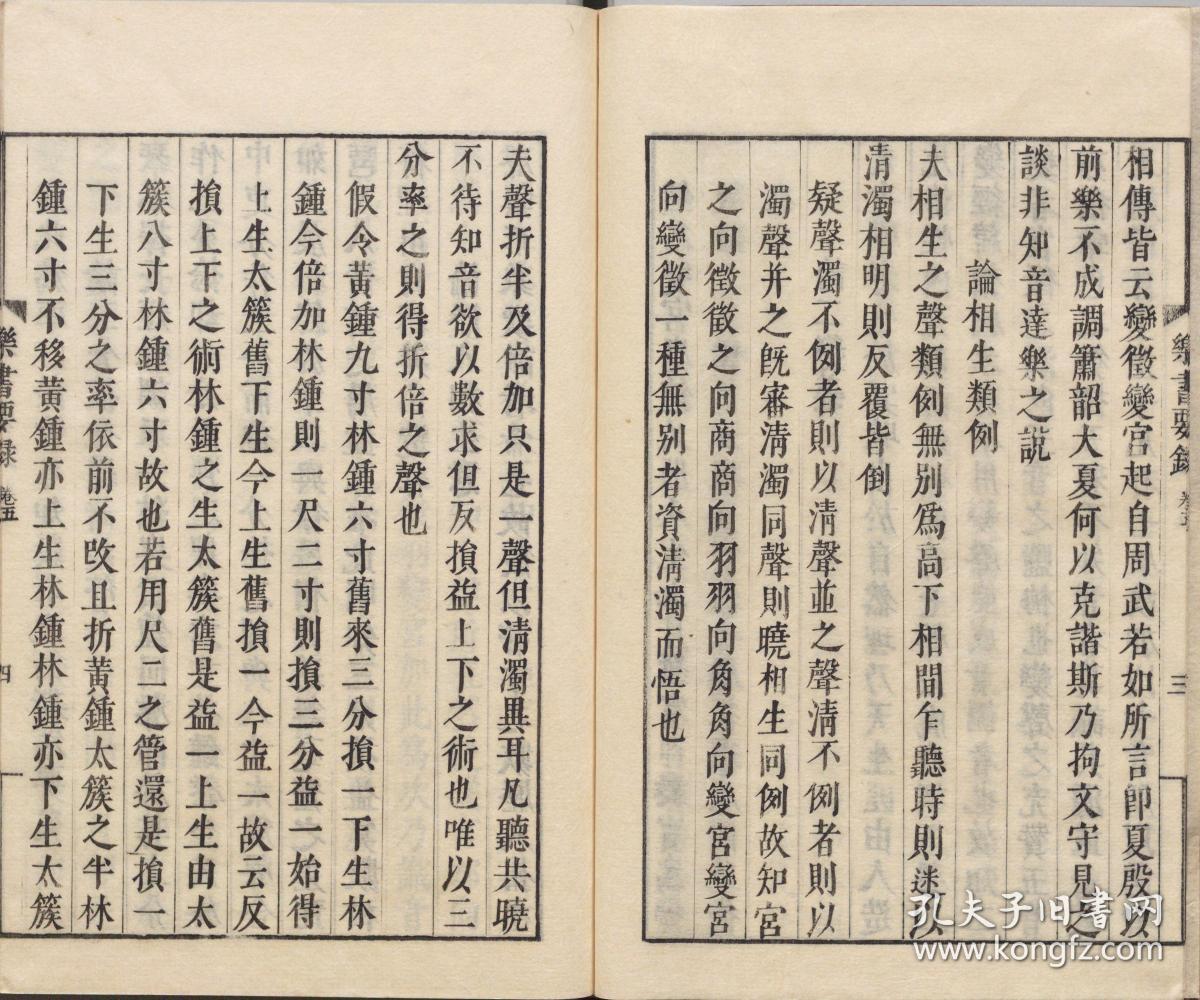 樂書要録 卷五
三
相傳皆云變徵變宮起自周武若如所言卽夏殷以
前樂不成調簫韶大夏何以克諧斯乃拘文守見之
談非知音達樂之說
論相生類例
夫相生之聲類例無別爲高下相間乍聽時則迷以
清濁相明則反覆皆倒
疑聲濁不例者則以清聲並之聲清不例者則以
濁聲并之旣審清濁同聲則曉相生同例故知宮
之向徵徵之向商商向羽羽向角角向變宮變宮
向變徵一種無別者資清濁而悟也
夫聲折半及倍加只是一聲但清濁異耳凡聽共曉
不待知音欲以數求但反損益上下之術也唯以三
分率之則得折倍之聲也
假令黃鍾九寸林鍾六寸舊來三分損一下生林
鍾今倍加林鍾則一尺二寸則損三分益一始得
上生太簇舊下生今上生舊損一今益一故云反
損上下之術林鍾之生太簇舊是益一上生由太
簇八寸林鍾六寸故也若用尺二之管還是損一
下生三分之率依前不改且折黃鍾太簇之半林
鍾六寸不移黃鍾亦上生林鍾林鍾亦下生太簇
樂書要録 卷五
四
孔夫子旧书网
www.kongfz.com